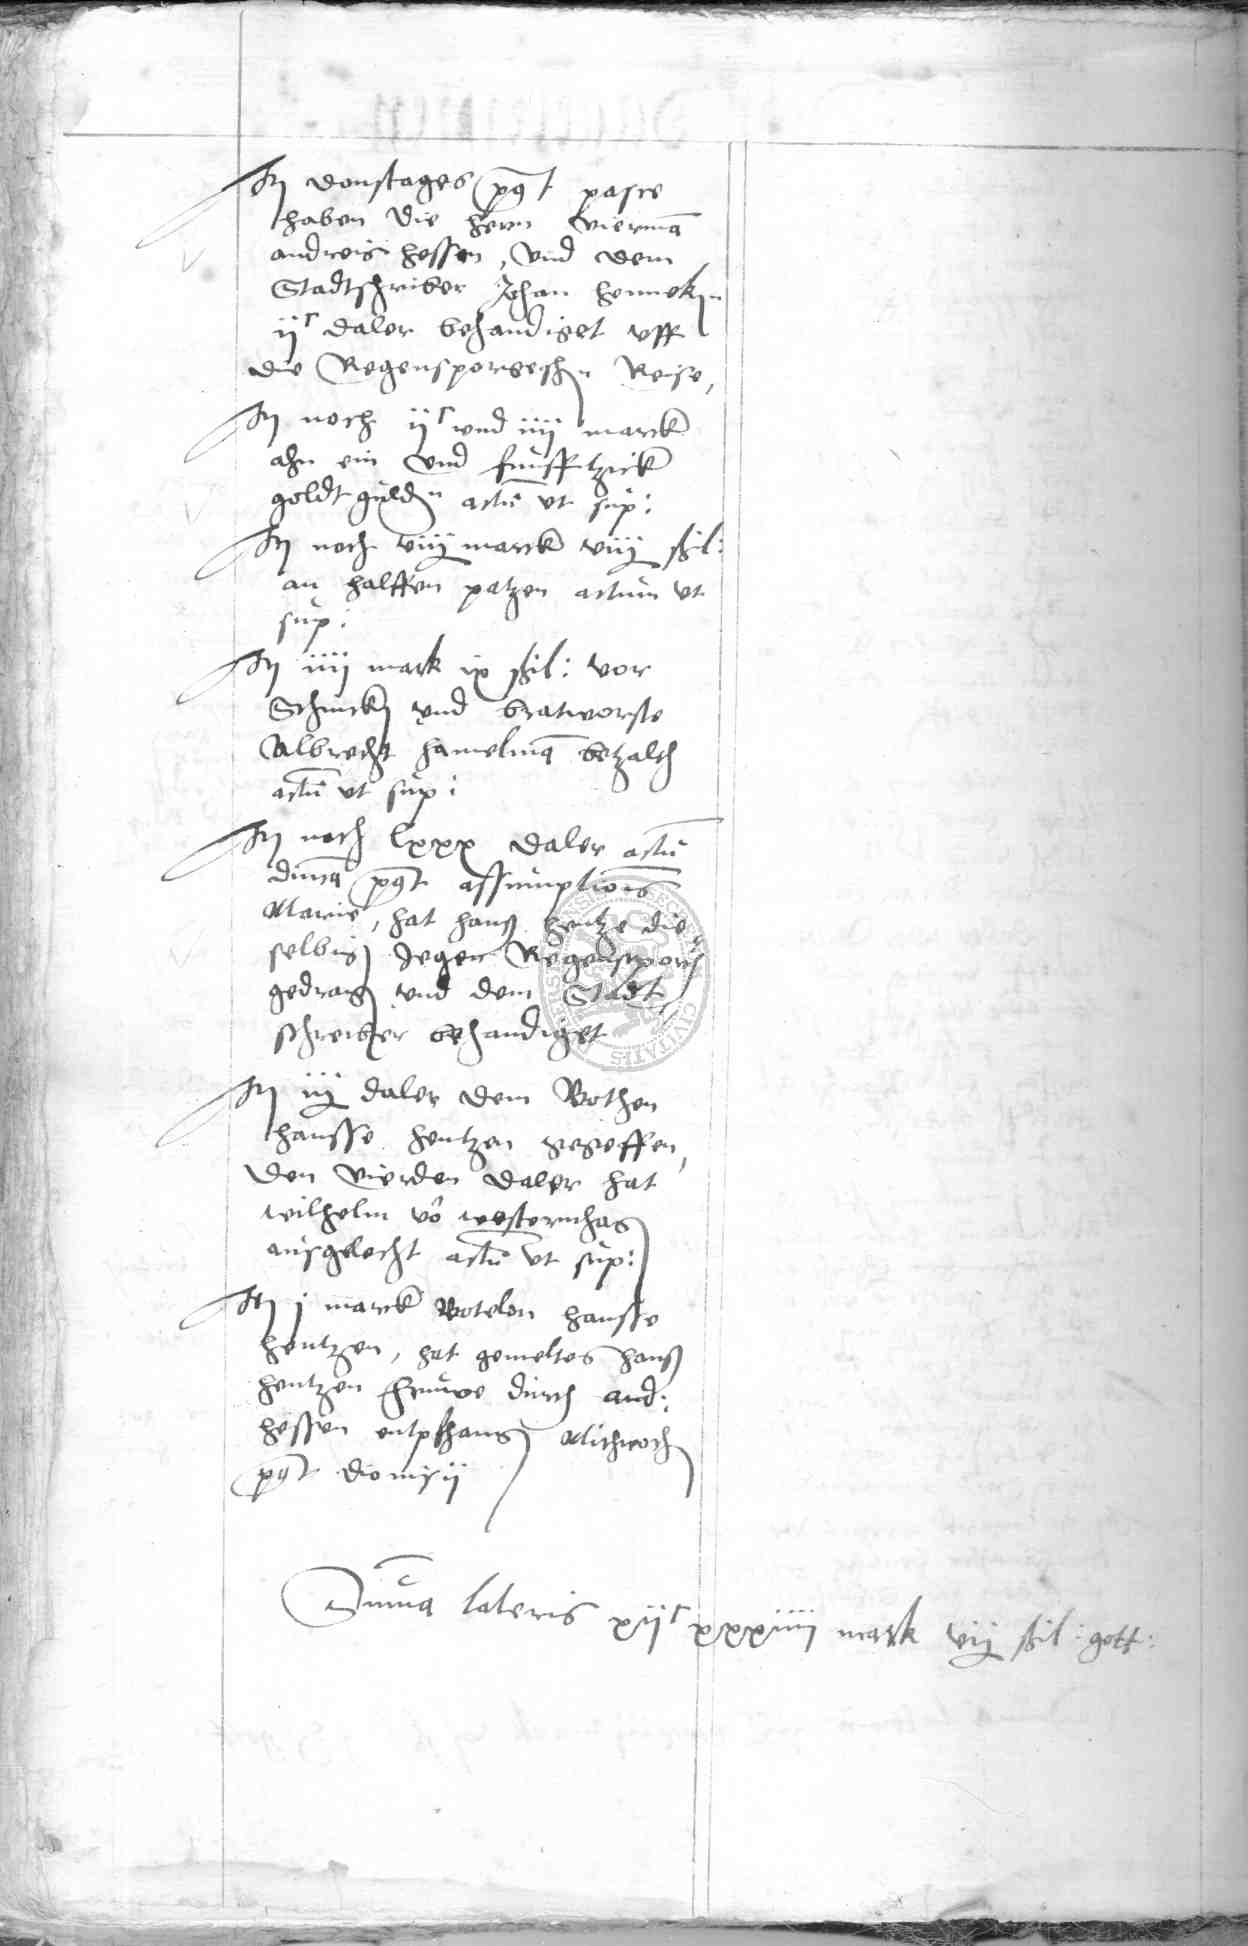 It donstages post pasce
haben die hern vierma
andreis hessen, vnd dem
Stadtschriber Johan Henneken
ijc daler behandiget vff
die Regensporgeschen Reise,
It noch ijc vnd iiij marck
ahn ein vnd funfftzick
goldt gulden actu vt sup:
It noch viij marck viij ßil:
an halffen patzen actum vt
sup:
It iiij mark ix ßil: vor
Schincken vnd bratworste
Albrecht Hamelma betzalth
actu vt sup:
It noch lxxx daler actu
dinca post assumptionis
Marie, hat hanß Hentze die
selbigen Jegen Regensporch
gedragen vnd dem Stadt
schreiber behandiget
It iij daler dem Bothen
hansse Hentzen gegeffen,
den vierden daler hat
wilhelm vo westernhagen
ausgelecht actu vt sup:
It j marck Botelon hansse
Hentzen, hat gemeltes hanß
Hentzen fruwe durch and:
Hessen entphangen Mithwoch
post dionisij
Summa lateris xijc xxxiiij mark vij ßil: gott:
SECRET CIVITATIS